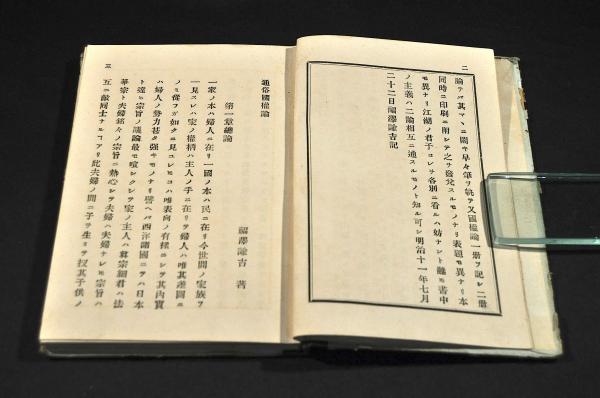 二
論ヲバ其マヽニ閣キ早々筆ヲ執テ又國權論一册ヲ記シ二册
同時ニ印刷ニ附シテ之ヲ發兌スルモノナリ表題モ異ナリ本
モ異ナリ江湖ノ君子コレヲ各別ニ看ルハ妨ナシト雖モ書中
ノ主義ハ二論相互ニ通スルモノト知ル可シ明治十一年七月
二十二日福澤諭吉記
通俗國權論
福澤諭吉 著
第一章總論
一家ノ本ハ婦人ニ在リ一國ノ本ハ民ニ在リ今世間ノ家族ヲ
一見スレハ家ノ權柄ハ主人ノ手ニ在リテ婦人ハ唯其差圖ニ
ノミ從フガ如クニ見ユレヒコハ唯表向ノ有樣ニシテ其內實
ハ婦人ノ勢力甚タ強キモノナリ譬ヘバ西洋諸國ニテハ日本
ト違ヒ宗旨ノ議論最モ喧シクシテ家ノ主人ハ眞宗細君ハ法
華宗ト夫婦銘々ノ宗旨ニ熱心シテ夫婦ハ夫婦ナレヒ宗旨ハ
互ニ敵同士ナルコアリ此夫婦ノ間ニ子ヲ生ミテ扨其子供ノ
三